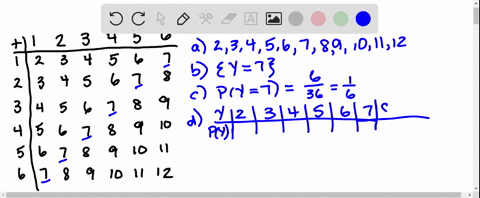 + 1 2 3 4 5 6
1 2 3 4 5 6 7
2 3 4 5 6 7 8
3 4 5 6 7 8 9
4 5 6 7 8 9 10
5 6 7 8 9 10 11
6 7 8 9 10 11 12
a) 2,3,4,5,6,7,8,9,10,11,12
b) {Y=7}
c) P(Y=7) = 6/36 = 1/6
d) Y 2 3 4 5 6 7
P(Y)